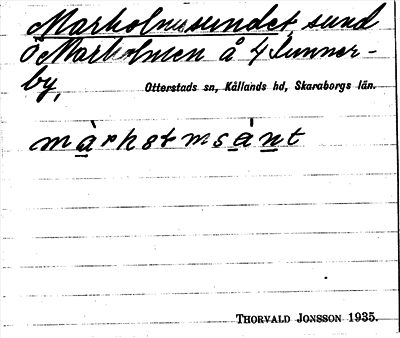 Marholmssundet, sund
Ö Marholmen å 4 Sunner-
by,
Otterstads sn, Kållands hd, Skaraborgs län.
THORVALD JONSSON 1935.